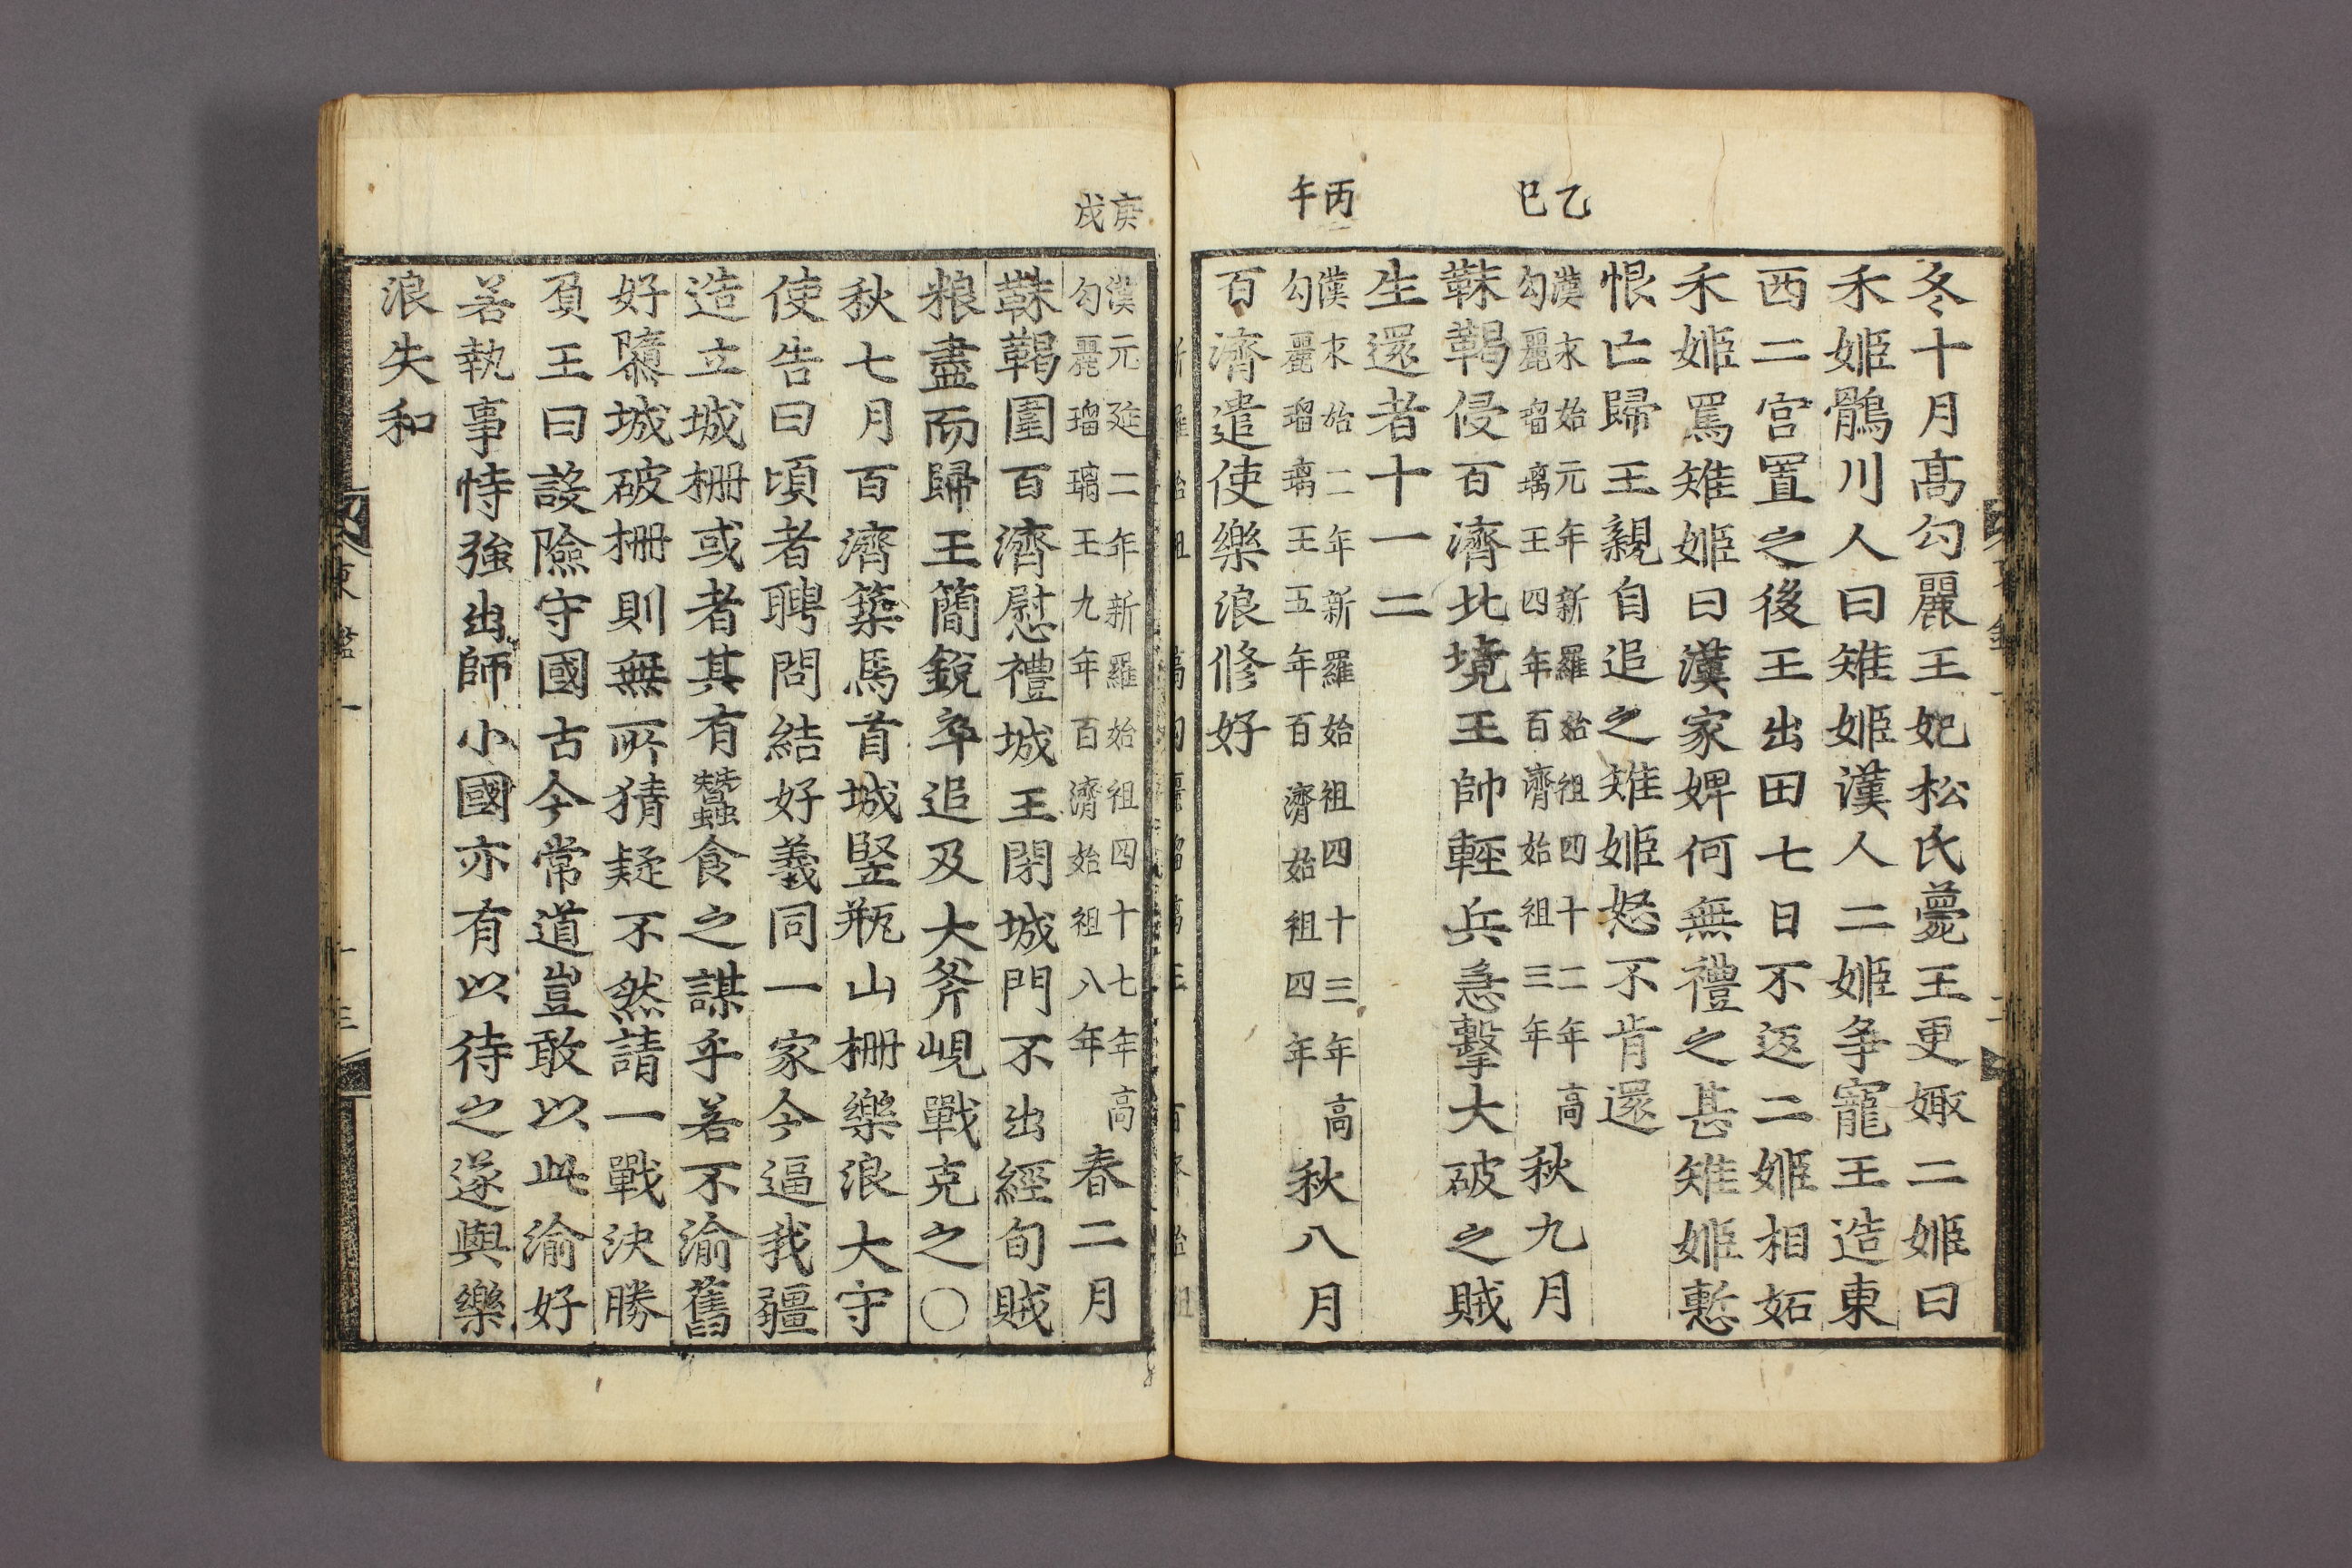 冬十月高勾麗王妃松氏薨王更娵二姬曰
禾姬鶻川人曰雉姬漢人二姬爭寵王造東
西二宮置之後王出田七日不返二姬相妬
禾姬罵雉姬曰漢家婢何無禮之甚雉姬慙
恨亡歸王親自追之雉姬怒不肯還
乙巳
漢永始元年新羅始祖四十二年高
勾麗瑠璃王四年百濟始祖三年
秋九月
靺鞨侵百濟北境王帥輕兵急擊大破之賊
生還者十一二
丙午
漢永始二年新羅始祖四十三年高
勾麗瑠璃王五年百濟始祖四年
秋八月
百濟遣使樂浪修好
庚戌
漢元延二年新羅始祖四十七年高
勾麗瑠璃王九年百濟始祖八年
春二月
靺鞨圍百濟慰禮城王閉城門不出經旬賊
粮盡而歸王簡銳卒追及大斧峴戰克之〇
秋七月百濟築馬首城竪瓶山柵樂浪大守
使告曰頃者聘問結好義同一家今逼我疆
造立城柵或者其有蠶食之謀乎若不渝舊
好隳城破柵則無所猜疑不然請一戰決勝
負王曰設險守國古今常道豈敢以此渝好
若執事恃強出師小國亦有以待之遂與樂
浪失和
東鑑一
十三